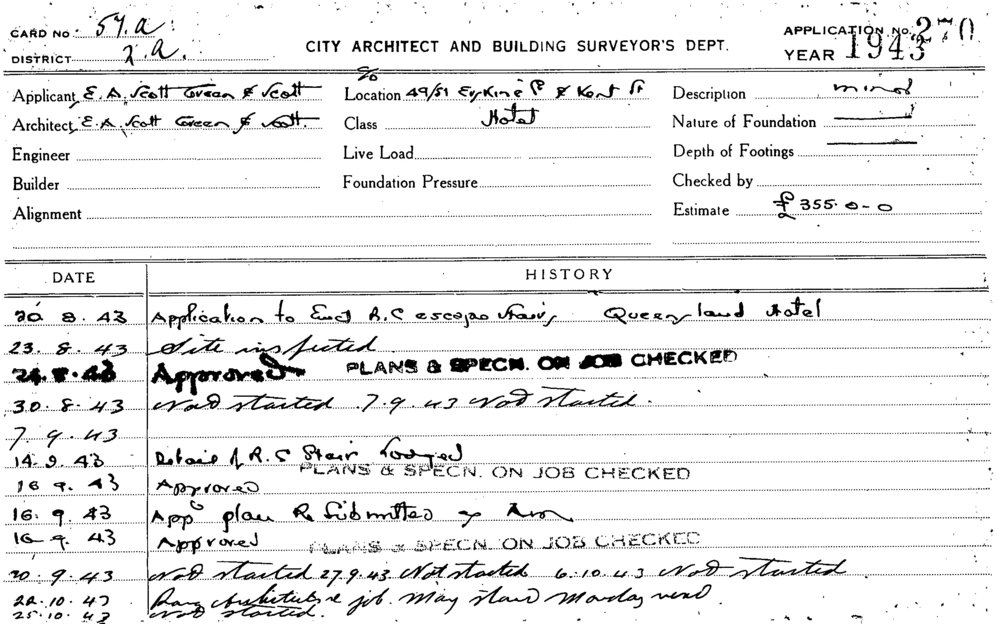 CARD NO. 57.a
DISTRICT 2.a.
CITY ARCHITECT AND BUILDING SURVEYOR'S DEPT.
APPLICATION No. 270
YEAR 1943
Applicant E. A. Scott Green & Scott
Architect E. A. Scott Green & Scott.
Engineer
Builder
Alignment
c/o
Location 49/51 Erskine St & Kent St
Class Hotel
Live Load
Foundation Pressure
Description minor
Nature of Foundation
Depth of Footings
Checked by
Estimate £355-0-0
DATE HISTORY
20. 8. 43 Application to Erect R.C escape stairs, Queensland Hotel
23. 8. 43 Site inspected.
24. 8. 43 Approved PLANS & SPECN. ON JOB CHECKED
30. 8. 43 Not started 7.9.43 Not started.
7. 9. 43
14. 9. 43 Detail of R.C Stair Lodged
PLANS & SPECN. ON JOB CHECKED
16 9. 43 Approved
16. 9. 43 App plan Re Submitted
16 9. 43 Approved PLANS & SPECN. ON JOB CHECKED
20. 9. 43 Not started 27.9.43 Not started 6.10.43 Not started.
22.10.43 Rang Architects re job. May start Monday next
25.10.43 Not started.